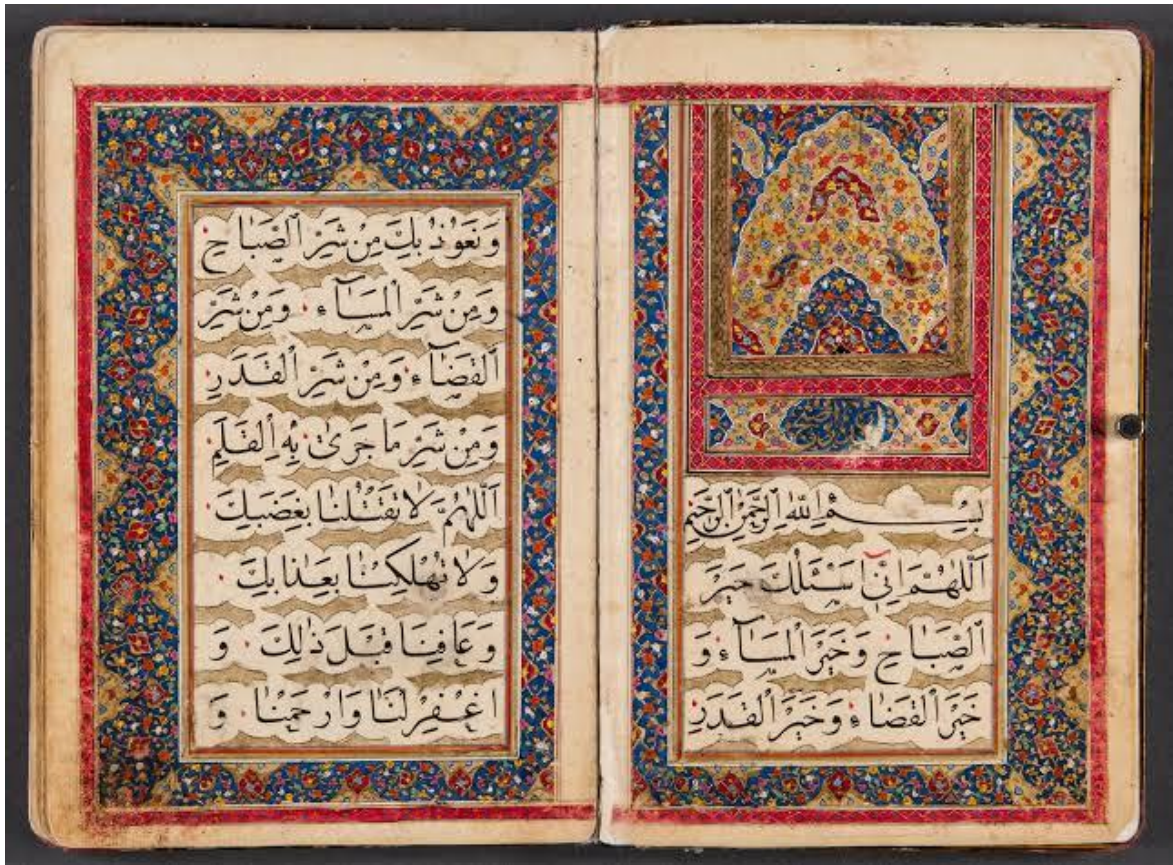 بِسْمِ اللّٰهِ الرَّحْمٰنِ الرَّحِيْمِ
اَللّٰهُمَّ اِنّٓى اَسْئَلُكَ خَيْرَ
الصَّبَاحِ وَخَيْرَ الْمَسَاۤءِ وَ
خَيْرَ الْقَضَاۤءِ وَخَيْرَ الْقَدَرِ
وَنَعُوْذُ بِكَ مِنْ شَرِّ الصَّبَاحِ
وَمِنْ شَرِّ الْمَسَاۤءِ وَمِنْ شَرِّ
الْقَضَاۤءِ وَمِنْ شَرِّ الْقَدَرِ
وَمِنْ شَرِّ مَا جَرٰى بِهِ الْقَلَمِ
اَللّٰهُمَّ لَا تَقْتُلْنَا بِغَضَبِكَ
وَلَا تُهْلِكْنَا بِعَذَابِكَ
وَعَافِنَا قَبْلَ ذٰلِكَ وَ
اغْفِرْ لَنَا وَارْحَمْنَا وَ